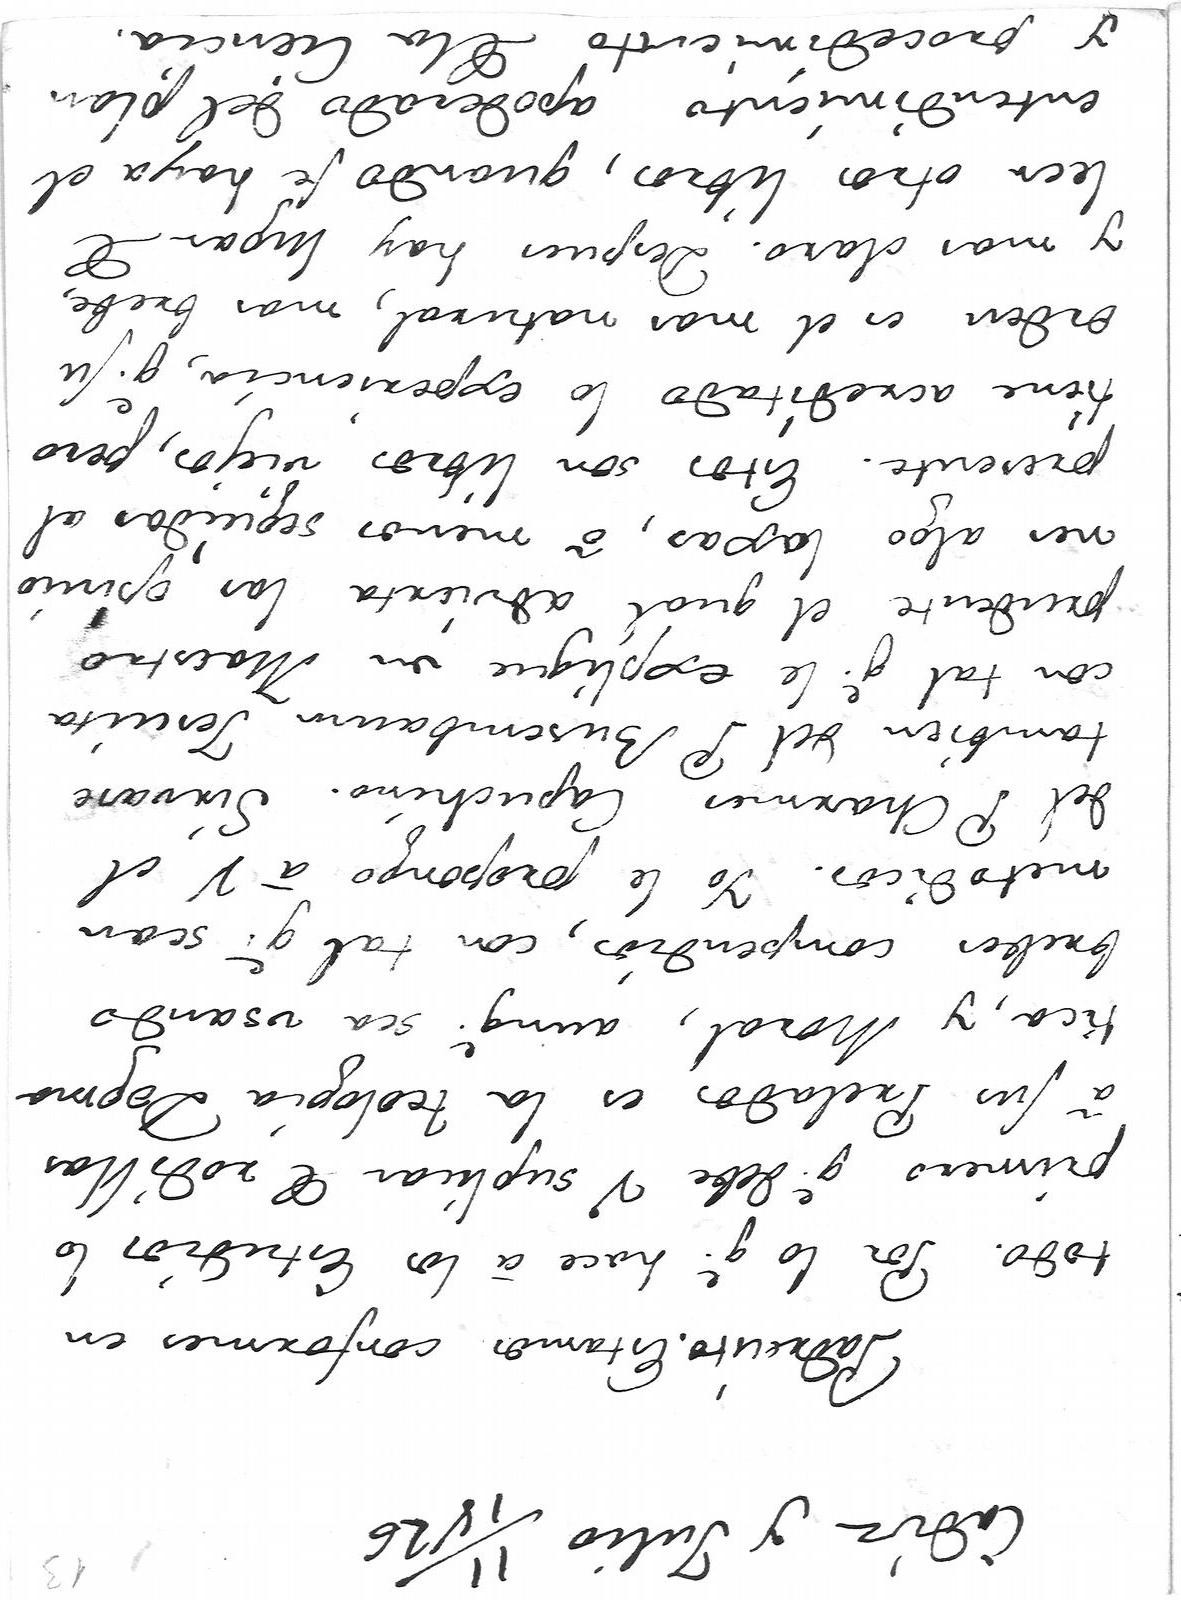 13
Cadiz y Julio 11/826
Padrecito. Estamos conformes en
todo. Por lo q.e hace â los Estudios lo
primero q.e debe V suplicar de rodillas
â sus Prelados es la teologia Dogma
tica, y Moral, aunq.e sea usando
brebes compendios, con tal q.e sean
metodicos. Yo le propongo â V el
del P Charmes Capuchino. Sirvase
tambien del P Busembaum Jesuita
con tal q.e le explique un Maestro
prudente el qual advierta las opinio
nes algo laxas, ô menos seguidas al
presente. Estos son libros viejos, pero
tiene acreditado la experiencia, q.e su
orden es el mas natural, mas brebe,
y mas claro. Despues hay lugar de
leer otros libros, quando se haya el
entendimiento apoderado del plan
y procedimiento de la Ciencia.